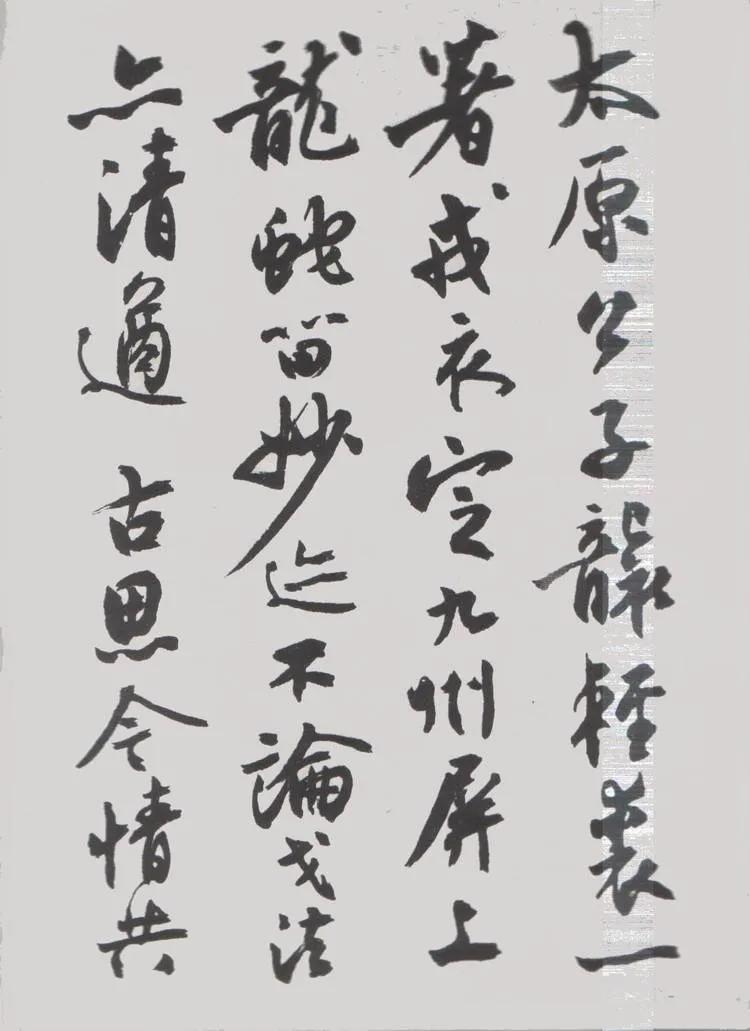 太原公子襲輕裘一
著戎衣定九州屏上
龍蛇留妙迹不論戈法
亦清遒 古思今情共